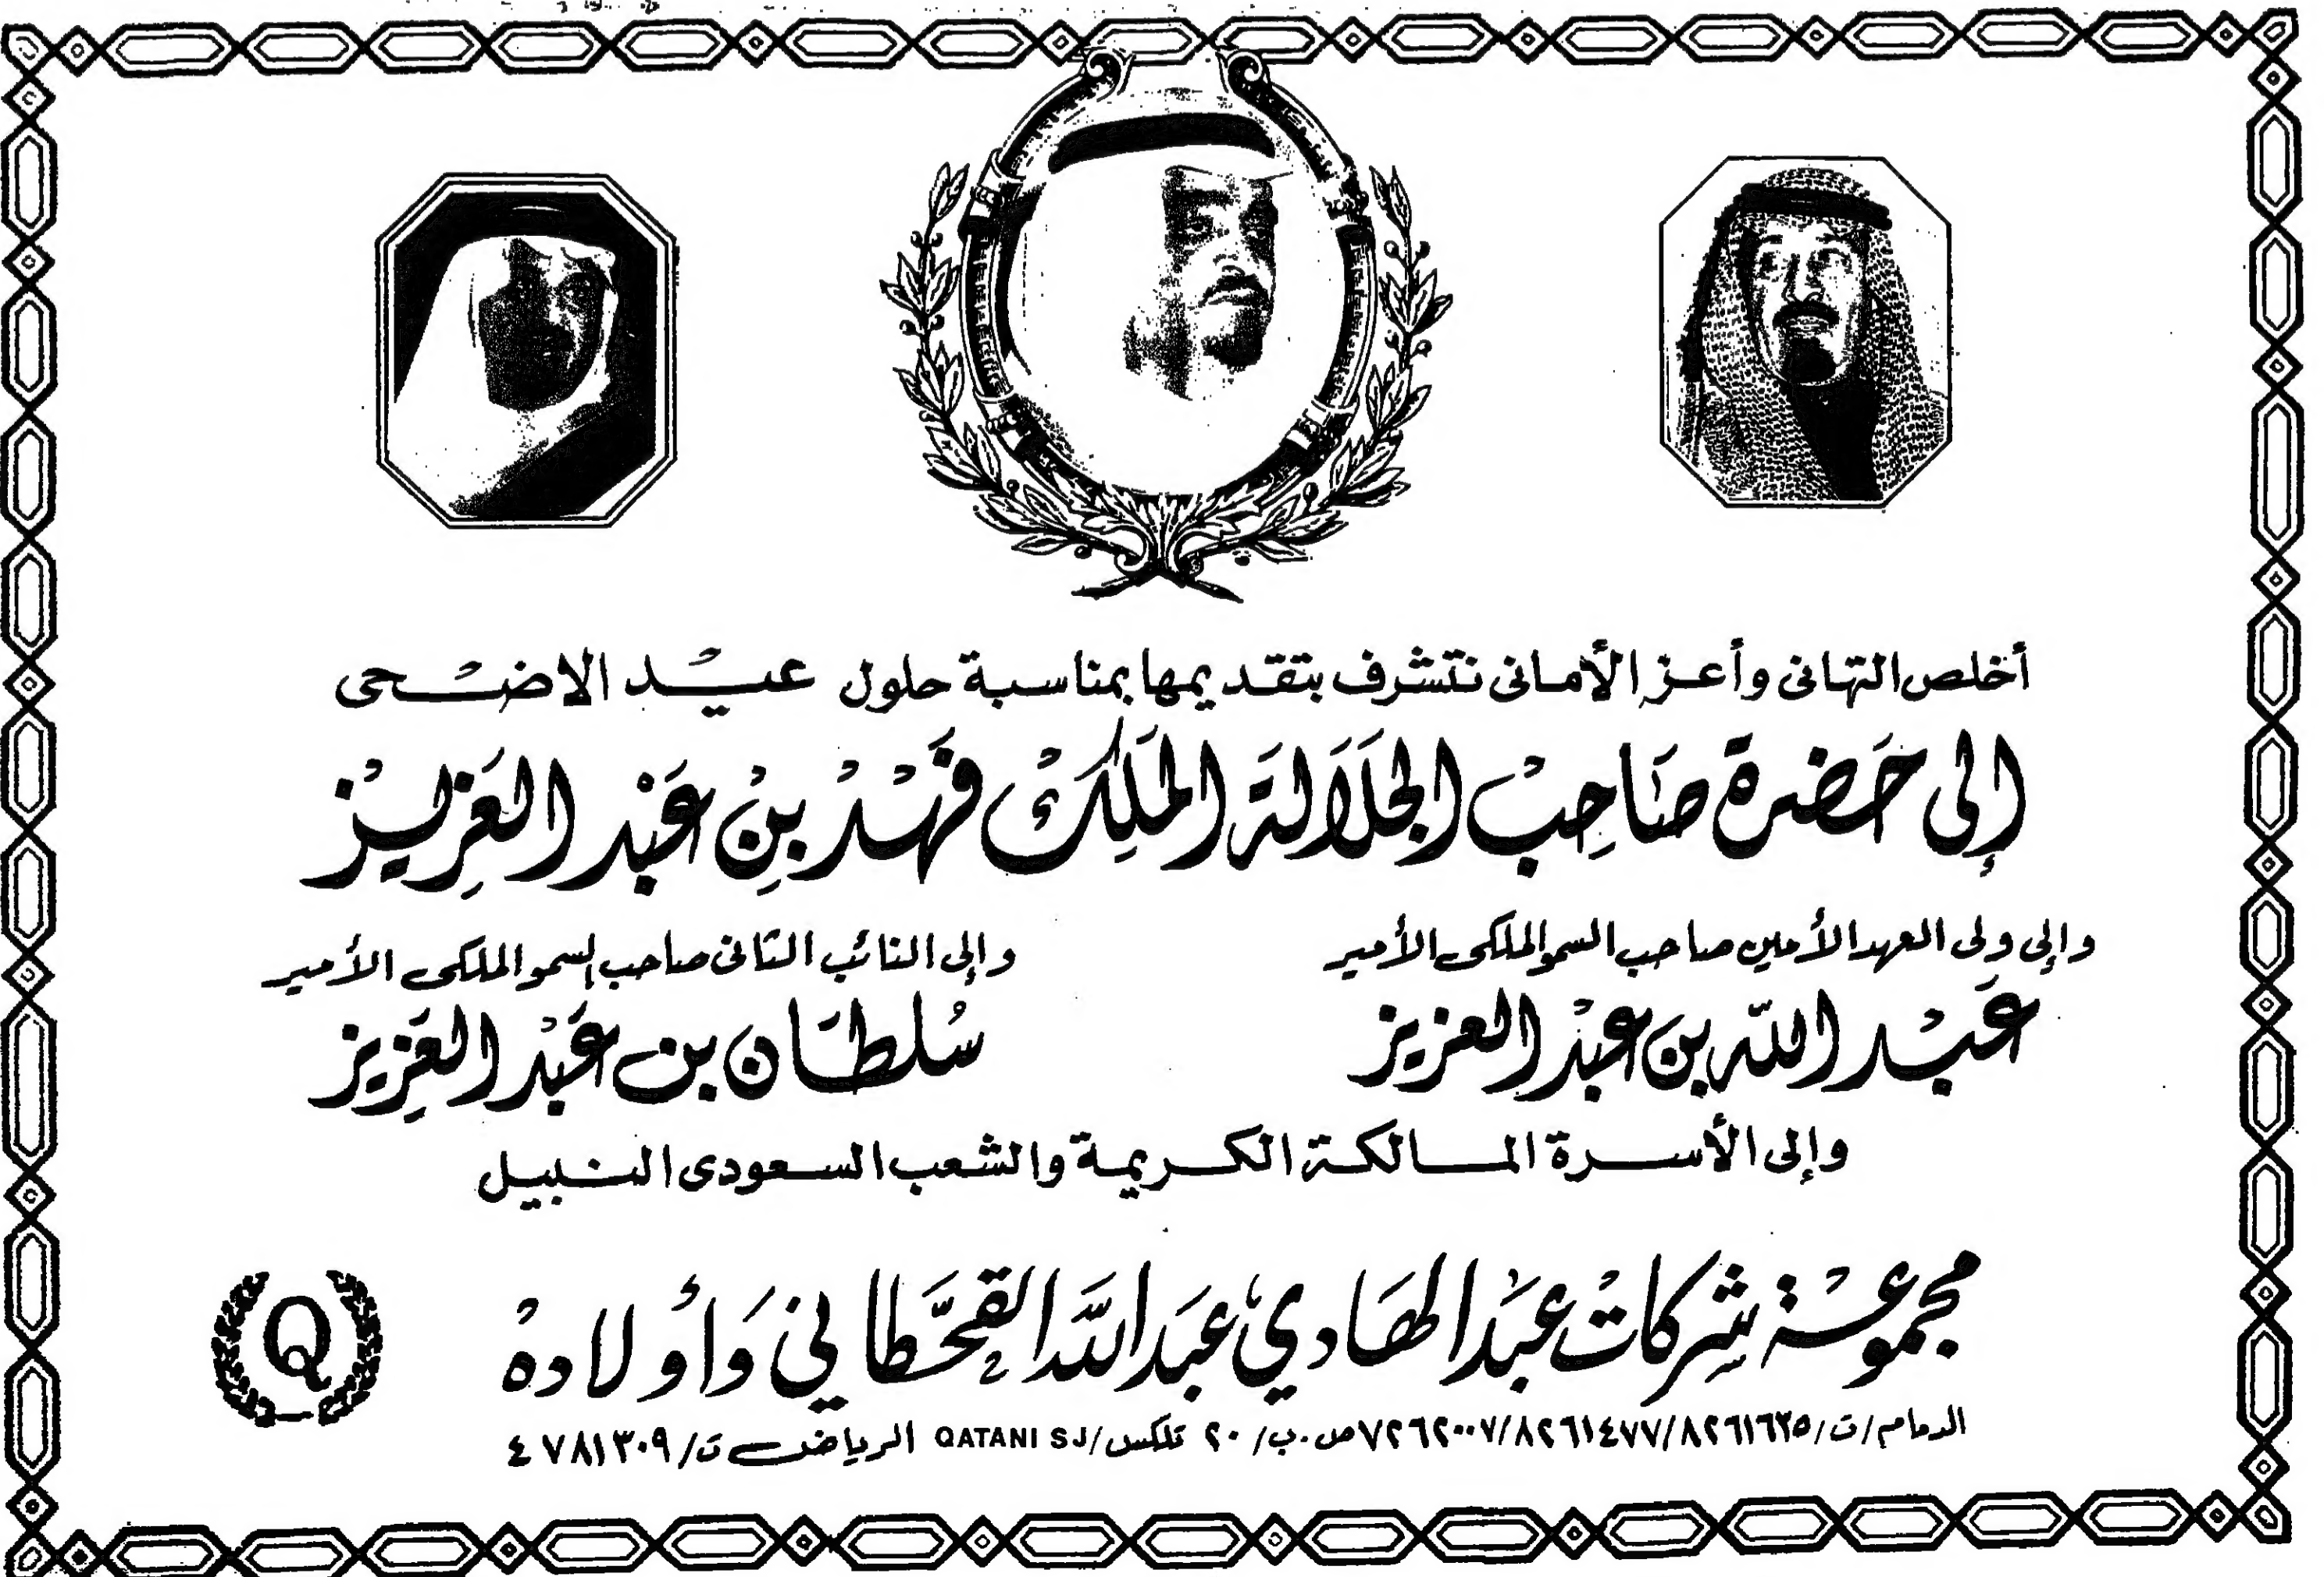 أخلص التهانى وأعز الأمانى نتشرف بتقديمها بمناسبة حلول عيد الاضحى
إلى حَضرة صَاحِبْ الجَلَالَة المَلِكْ فَهْدْ بِنْ عَبْد العَزِيزْ
وإلى ولى العهد الأمين صاحب السمو الملكى الأمير
عَبْد اللّه بن عبْد العزيز
وإلى النائب الثانى صاحب السمو الملكى الأمير
سُلطَان بن عَبْد العَزِيز
وإلى الأسرة المالكة الكريمة والشعب السعودى النبيل
مجموعَة شِركاتْ عبَد الهَادي عبَد اللَّه القحَّطاني وَأولادهْ
الدمام/ت/٨٢٦١٦٣٥/٨٢٦١٤٧٧/٧٢٦٢٠٠٧ ص.ب/٢٠ تلكس/QATANI SJ الرياض ت/٤٧٨١٣٠٩
Q